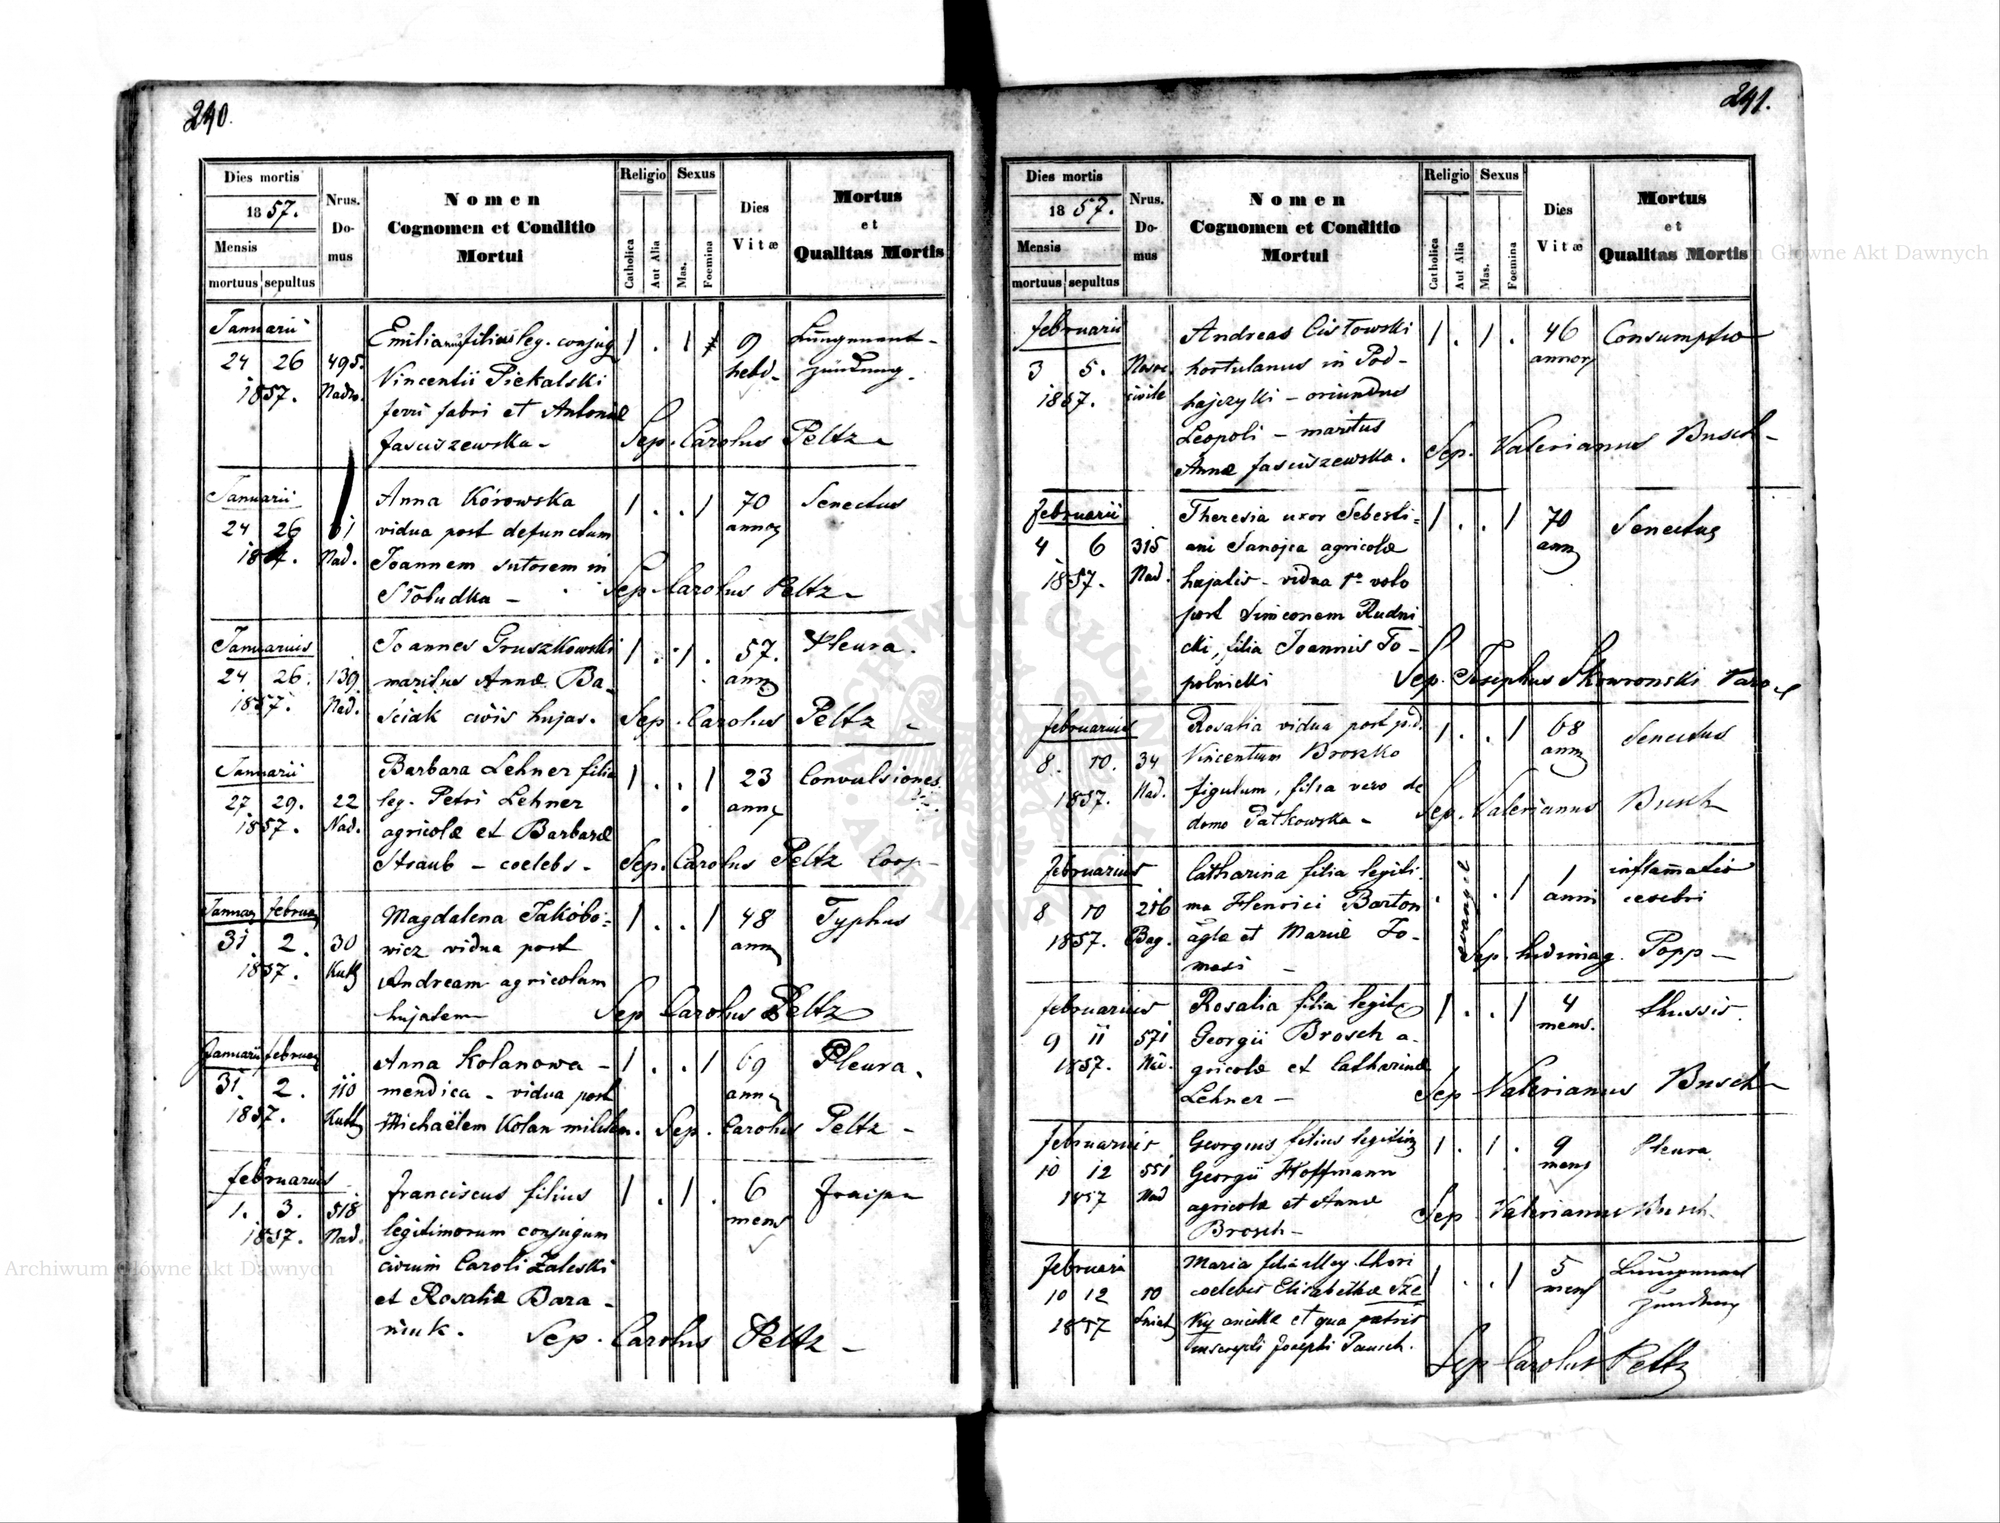 240.
Dies mortis
1857.
Mensis
mortuus sepultus
Nrus. Domus
Nomen
Cognomen et Conditio
Mortui
Religio
Catholica
Aut Alia
Sexus
Mas.
Foemina
Dies
Vitæ
Mortus
et
Qualitas Mortis
Januarii
24 26 495. Emilianus filius leg. conjug 1 . 1 9 Lungenent-
1857. Nadw. Vincentii Piekalski hebd. zündung.
ferri fabri et Antoniæ
Jasciszewska - Sep. Carolus Peltz
Januarii
24 26 61 Anna Kórowska 1 . . 1 70 Senectus
Nad. vidua post defunctum annor
Joannem sutorem in
Słobudka - Sep. Carolus Peltz -
Januarius
24 26. 139 Joannes Gruszkowski 1 . 1 . 57. Pleura.
1857. Nad. maritus Annæ Ba-
ściak civis hujas. Sep. Carolus Peltz -
Januarii
27 29. 22 Barbara Lehner filia 1 . . 1 23 Convulsiones
1857. Nad. leg. Petri Lehner
agricolæ et Barbaræ
Straub - coelebs - Sep. Carolus Peltz Coop-
Januar februar
31 2. 30 Magdalena Jakóbo- 1 . . 1 48 Typhus
1857. Kutt wicz vidua post
Andream agricolam
hujatem Sep Carolus Peltz
Januarii februar
31. 2. 110 Anna Kolanowa - 1 . . 1 69 Pleura.
1857. Kutt mendica - vidua post
Michaëlem Kolan militem. Sep. Carolus Peltz -
februarius
1. 3. 518 franciscus filius 1 . 1 . 6 Fraipe
1857. Nad. legitimorum conjugum mens
civium Caroli Zaleski
et Rosaliæ Bara-
niuk. Sep. Carolus Peltz -
241.
Dies mortis
1857.
Mensis
mortuus sepultus
Nrus. Domus
Nomen
Cognomen et Conditio
Mortui
Religio
Catholica
Aut Alia
Sexus
Mas.
Foemina
Dies
Vitæ
Mortus
et
Qualitas Mortis
februarii
3 5. Andreas Cistowski 1 . 1 . 46 Consumptio
1857. hortulanus in Pod- annor
hajczyki - oriundus
Leopoli - maritus
Annæ Jasciszewska. Sep. Valerianus Busch -
februarii
4 6 315 Theresia uxor Sebesti- 1 . . 1 70 Senectus
1857. Nad. ani Sanojca agricolæ
hujatis - vidua 1º voto
post Simeonem Rudni-
cki, filia Joannis To-
polnicki Sep. Josephus Skowronski
februarius
8. 10. 34 Rosalia vidua post p.d. 1 . . 1 68 Senectus
1857. Nad. Vincentium Broszko
figulum, filia vero de
domo Patkowska - Sep. Valerianus Busch
februarius
8 10 216 Catharina filia legiti- . evangel . 1 1 inflamatio
1857. Bag. ma Henrici Barton anni cerebri
et Mariæ To-
masi - Sep. Popp -
februarius
9 11 571 Rosalia filia legit 1 . . 1 4 tussis.
1857. Nad. Georgii Brosch a- mens.
gricolæ et Catharinæ
Lehner - Sep Valerianus Busch
februarius
10 12 551 Georgius filius legitim 1 . 1 . 9 Pleura
1857 Nad Georgii Hoffmann mens
agricolæ et Annæ
Brosch - Sep Valerianus Busch.
februari
10 12 10 Maria filia illeg. thori 1 . . 1 5 Lungenent
1857 Sniat coelebis Elisabethæ Sze- mens zündung
ky ancillæ et qua patris
inscripti Josephi Pausch. Sep Carolus Peltz
Archiwum Główne Akt Dawnych